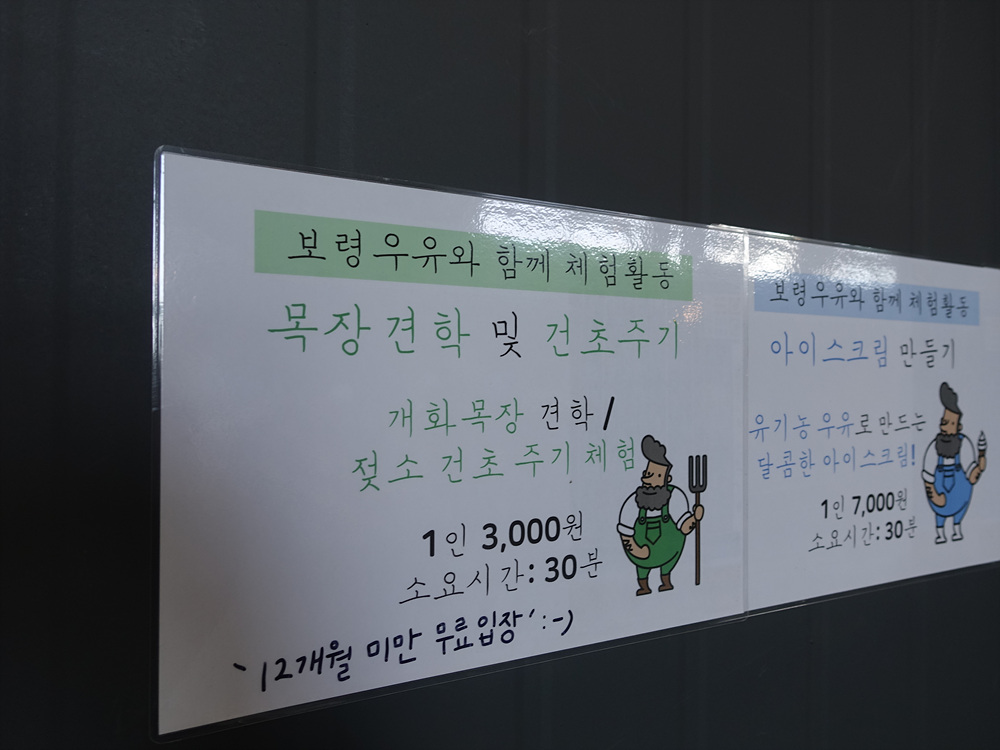 보령우유와 함께 체험활동
목장견학 및 건초주기
개화목장 견학/
젖소 건초주기 체험
1인 3,000원
소요시간: 30분
`12개월 미만 무료입장' :-)
보령우유와 함께 체험활동
아이스크림 만들기
유기농 우유로 만드는
달콤한 아이스크림!
1인 7,000원
소요시간: 30분